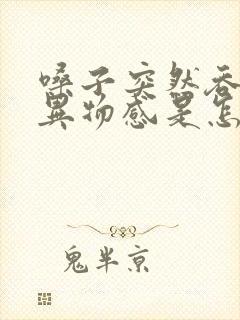 嗓子突然吞
異物感是怎
鬼半京